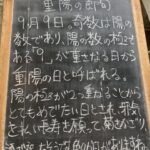 重陽の節句
9月9日、奇数は陽の
数であり、陽の数の極で
ある"9"が重なる日から
重陽の日と呼ばれる。
陽の極が2つ重なることから
とてもめでたい日とされ、邪気
を払い長寿を願って菊をかざり
酒を